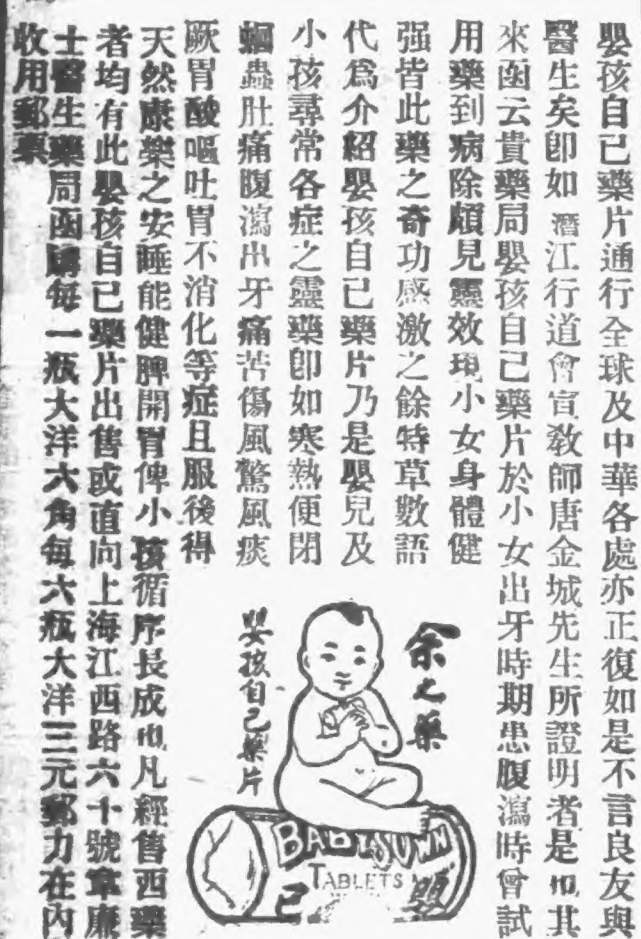 嬰孩自已藥片通行全球及中華各處亦正復如是不言良友與
醫生矣卽如潛江行道會宣敎師唐金城先生所證明者是也其
來函云貴藥局嬰孩自己藥片於小女出牙時期患腹瀉時曾試
用藥到病除頗見靈效現小女身體健
强皆此藥之奇功感激之餘特草數語
代爲介紹嬰孩自己藥片乃是嬰兒及
小孩尋常各症之靈藥卽如寒熱便閉
蛔蟲肚痛腹瀉出牙痛苦傷風驚風痰
厥胃酸嘔吐胃不消化等症且服後得
天然康樂之安睡能健脾開胃俾小孩循序長成也凡經售西藥
者均有此嬰孩自己藥片出售或直向上海江西路六十號韋廉
士醫生藥局函購每一瓶大洋六角每六瓶大洋三元郵力在內
收用郵票
余之藥
嬰孩自己藥片
BABY'S OWN
TABLETS
己